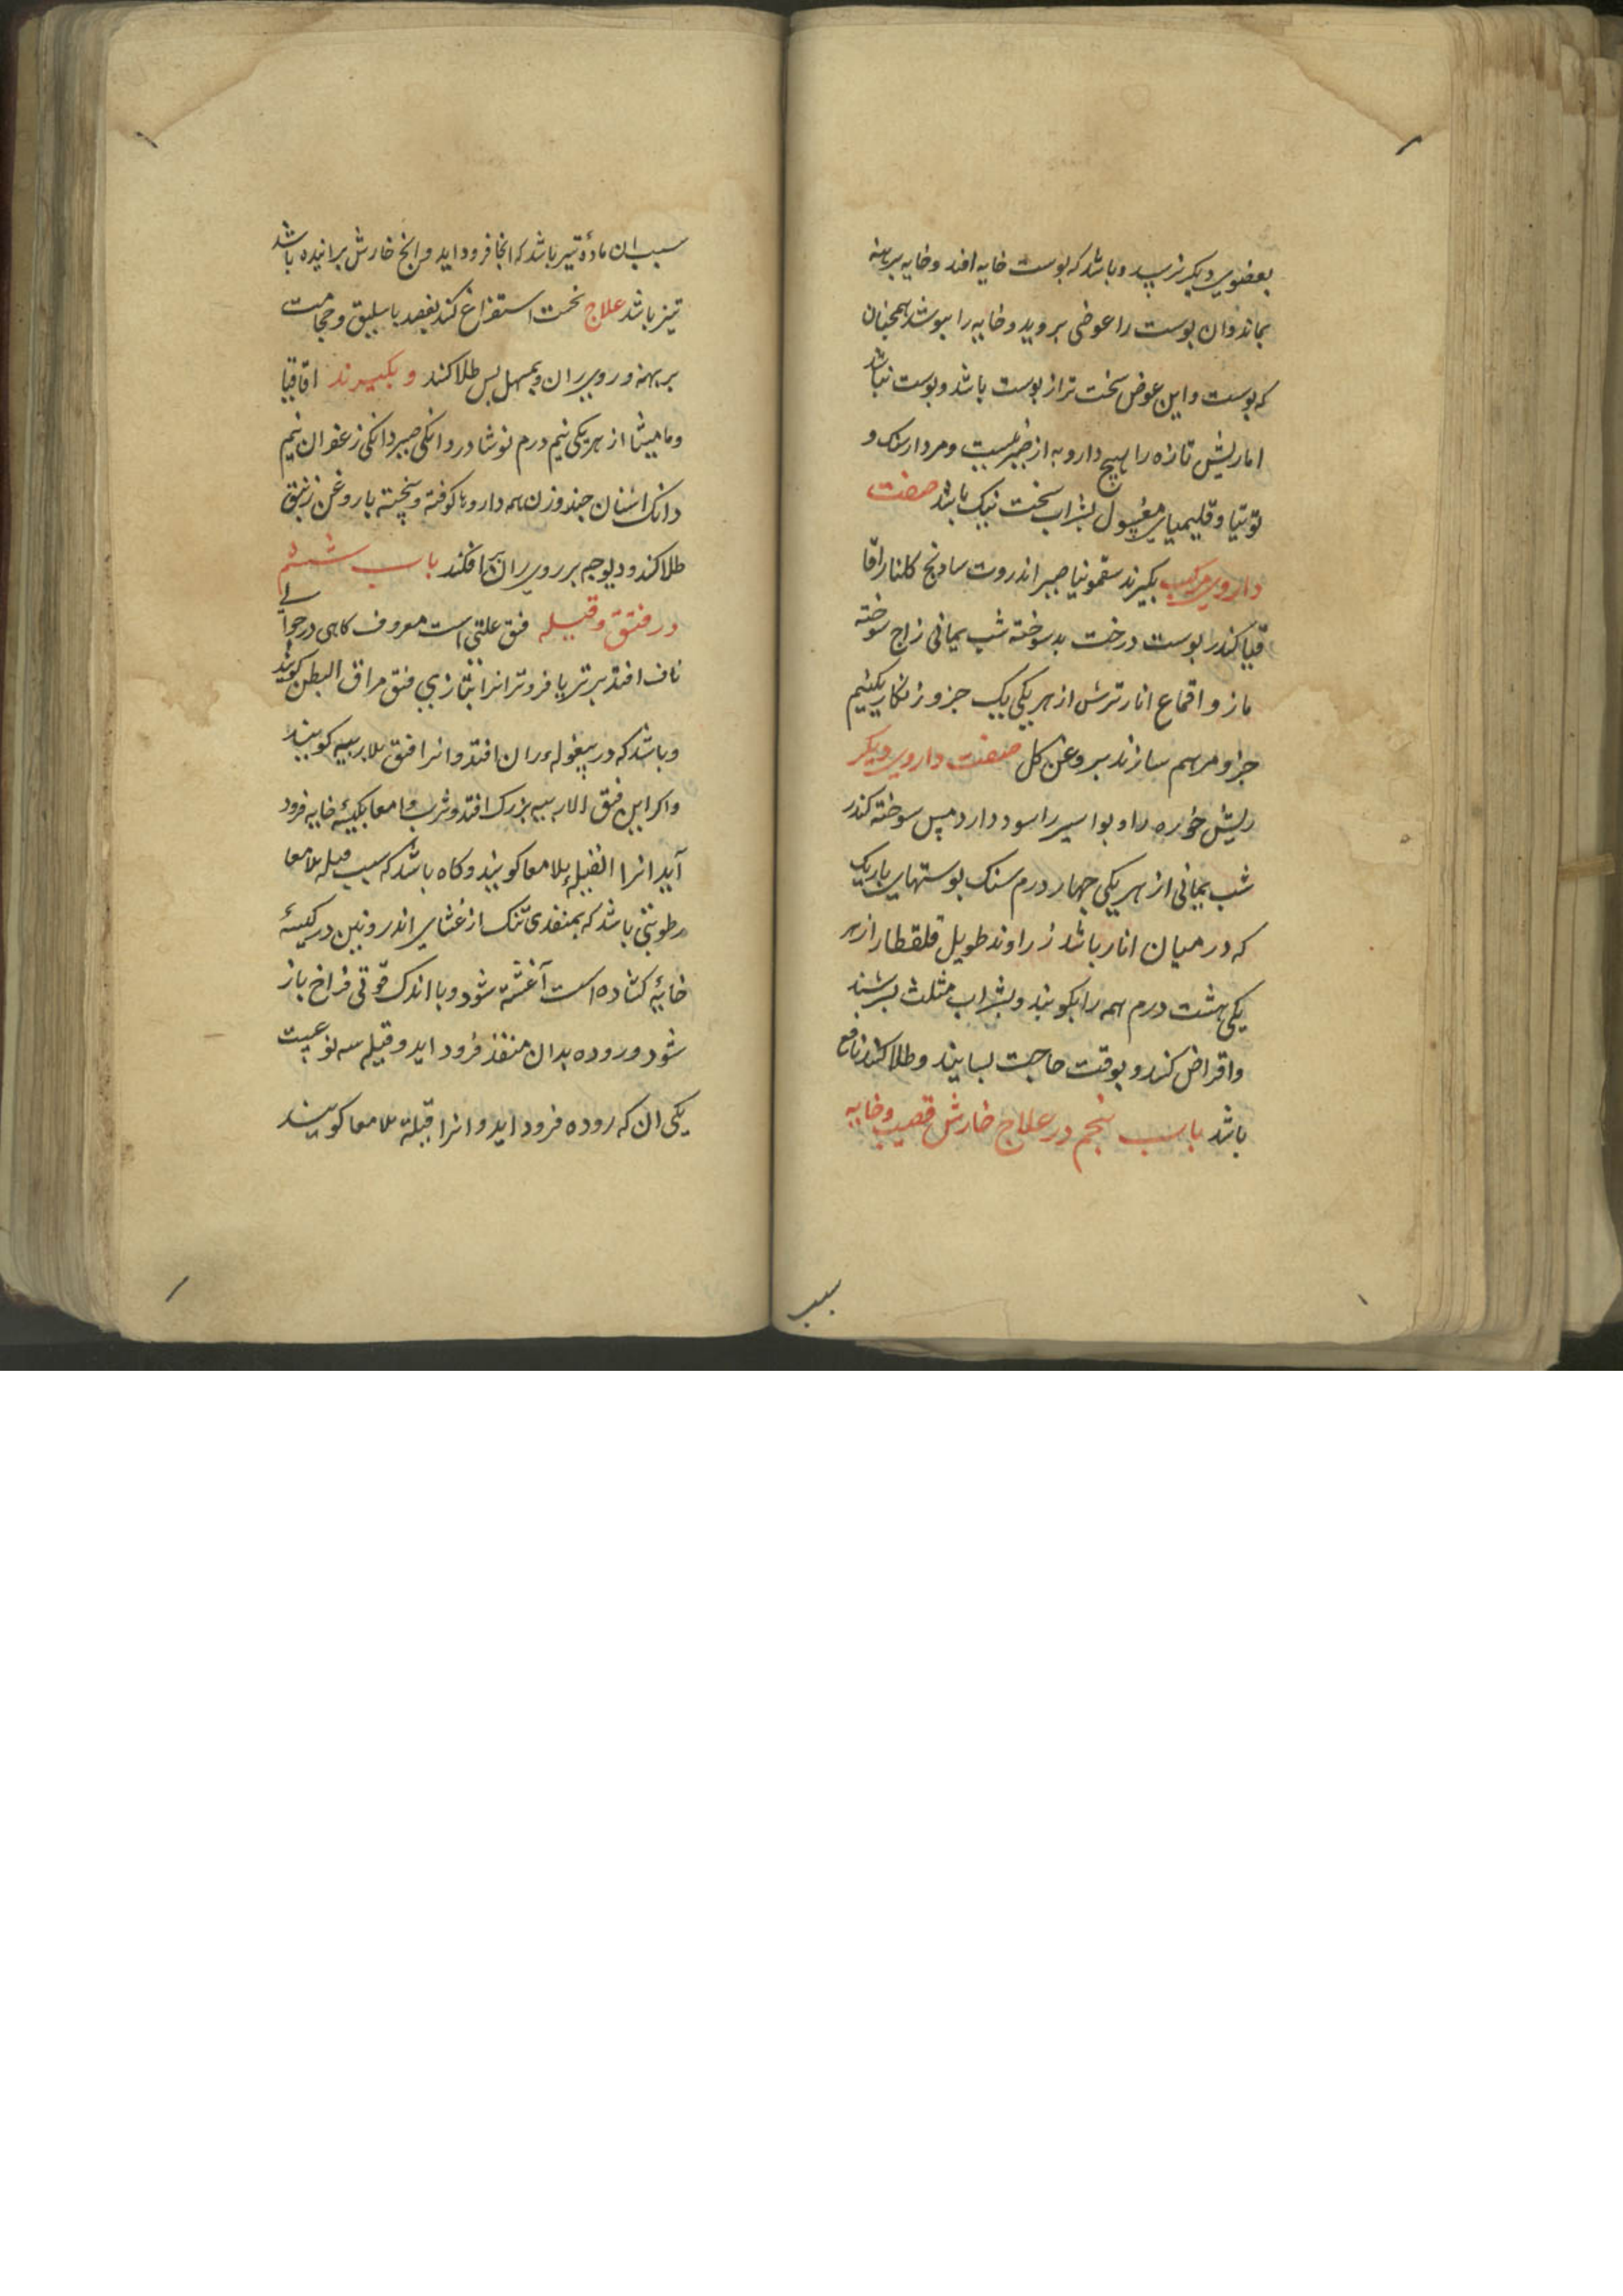 بعضوی دیکر نرسد و باشد که پوست خایه افتد و خایه برهنه
بماند و ان پوست را عوضی بروید و خایه را بپوشد همچنان
که پوست و این عوض سخت تر از پوست باشد و پوست نباشد
اما ریش تازه را هیچ دارو به از صبر نیست و مردارسنک و
توتیا و قلیمیای مغسول بشراب سخت نیک باشد صفت
داروی مرکب بکیرند سقمونیا صبر انذروت سادنج کلنار اقا
قیا کندر پوست درخت بد سوخته شب یمانی زاج سوخته
مازو اقماع انار ترش از هر یکی یک جزو زنکار یکنیم
جزو مرهم سازند بروغن کل صفت داروی دیکر
ریش خوره را و بواسیر را سود دارد مس سوخته کندر
شب یمانی از هر یکی چهار درم سنک پوستهای باریک
که در میان انار باشد زراوند طویل قلقطار از هر
یکی هشت درم همه را بکوبند و بشراب مثلث بسرشند
و اقراص کنند و بوقت حاجت بسایند و طلا کنند نافع
باشد باب پنجم در علاج خارش قضیب و خایه
سبب
سبب ان مادهٔ تیز باشد که انجا فرود اید و انج خارش برانیده باشد
تیز باشد علاج نخست استفراغ کند بفصد باسلیق و حجامت
بر پهنه و روی ران و بمسهل پس طلا کند و بکیرند اقاقیا
و مامیثا از هر یکی نیم درم نوشادر دانکی صبر دانکی زعفران نیم
دانک اشنان چند وزن همه داروها کوفته و پخته با روغن زنبق
طلا کند و دیوچه بر روی ران افکند باب ششم
در فتق و قیله فتق علتی است معروف کاهی در حوالی
ناف افتد برتر یا فروتر انرا بتازی فتق مراق البطن کویند
و باشد که در بیغوله ران افتد و انرا فتق الاربیه کویند
و اکر این فتق الاربیه بزرک افتد و ثرب و امعا بکیسهٔ خایه فرود
آید انرا القیله الامعا کویند و کاه باشد که سبب قیله الامعا
رطوبتی باشد که بمنفذی تنک از غشای اندرونین در کیسهٔ
خایهٔ کشاده است آغشته شود و با اندک قوتی فراخ باز
شود و روده بدان منفذ فرود اید و قیله سه نوعیست
یکی ان که روده فرود اید و انرا قیلة الامعا کویند